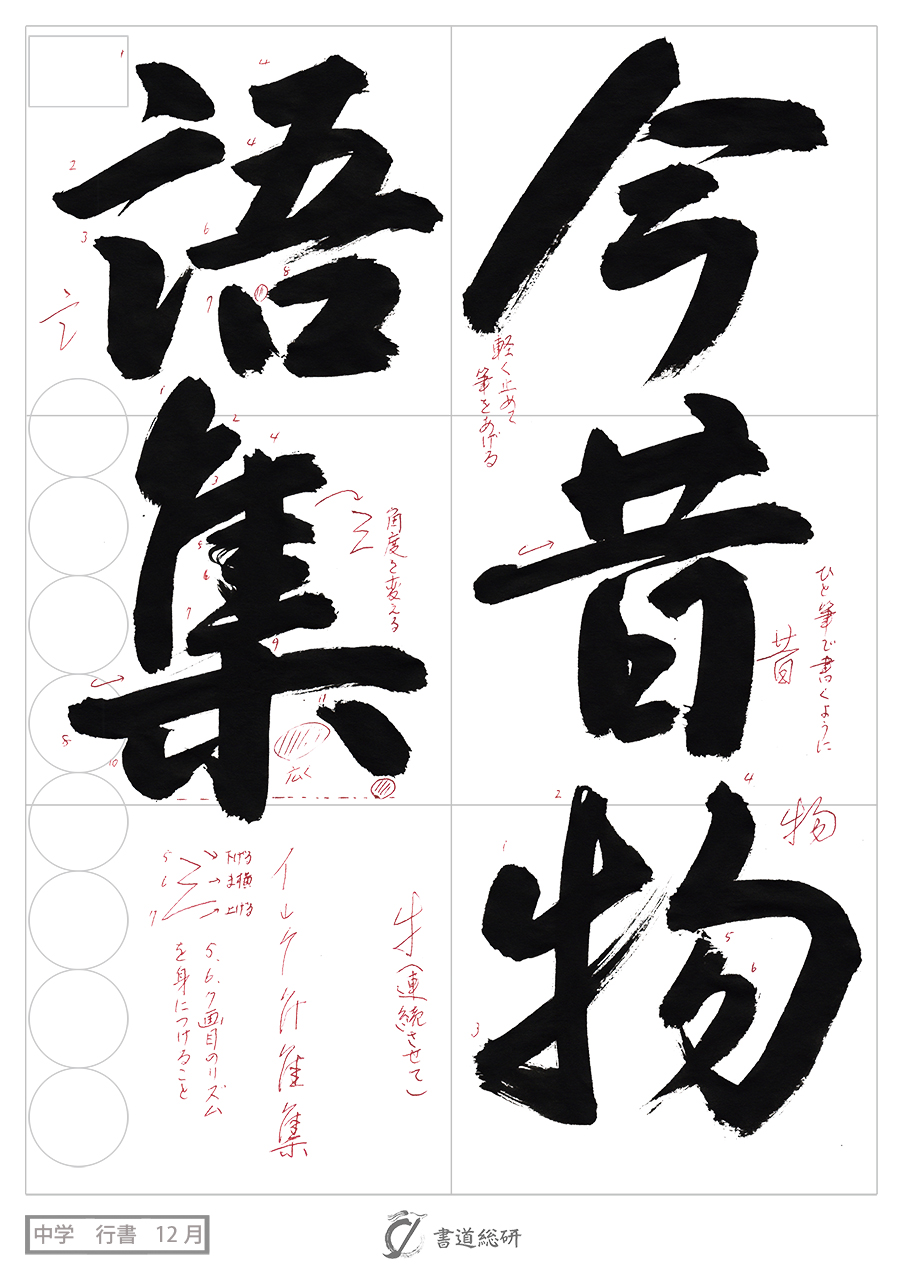 今昔物
語集
軽く止めて
筆をあげる
ひと筆で書くように
昔
物
角度を変える
広く
下げる
ま横
上げる
5.6.7画目のリズム
を身につけること
牛(連続させて)
集
中学 行書 12月
書道総研